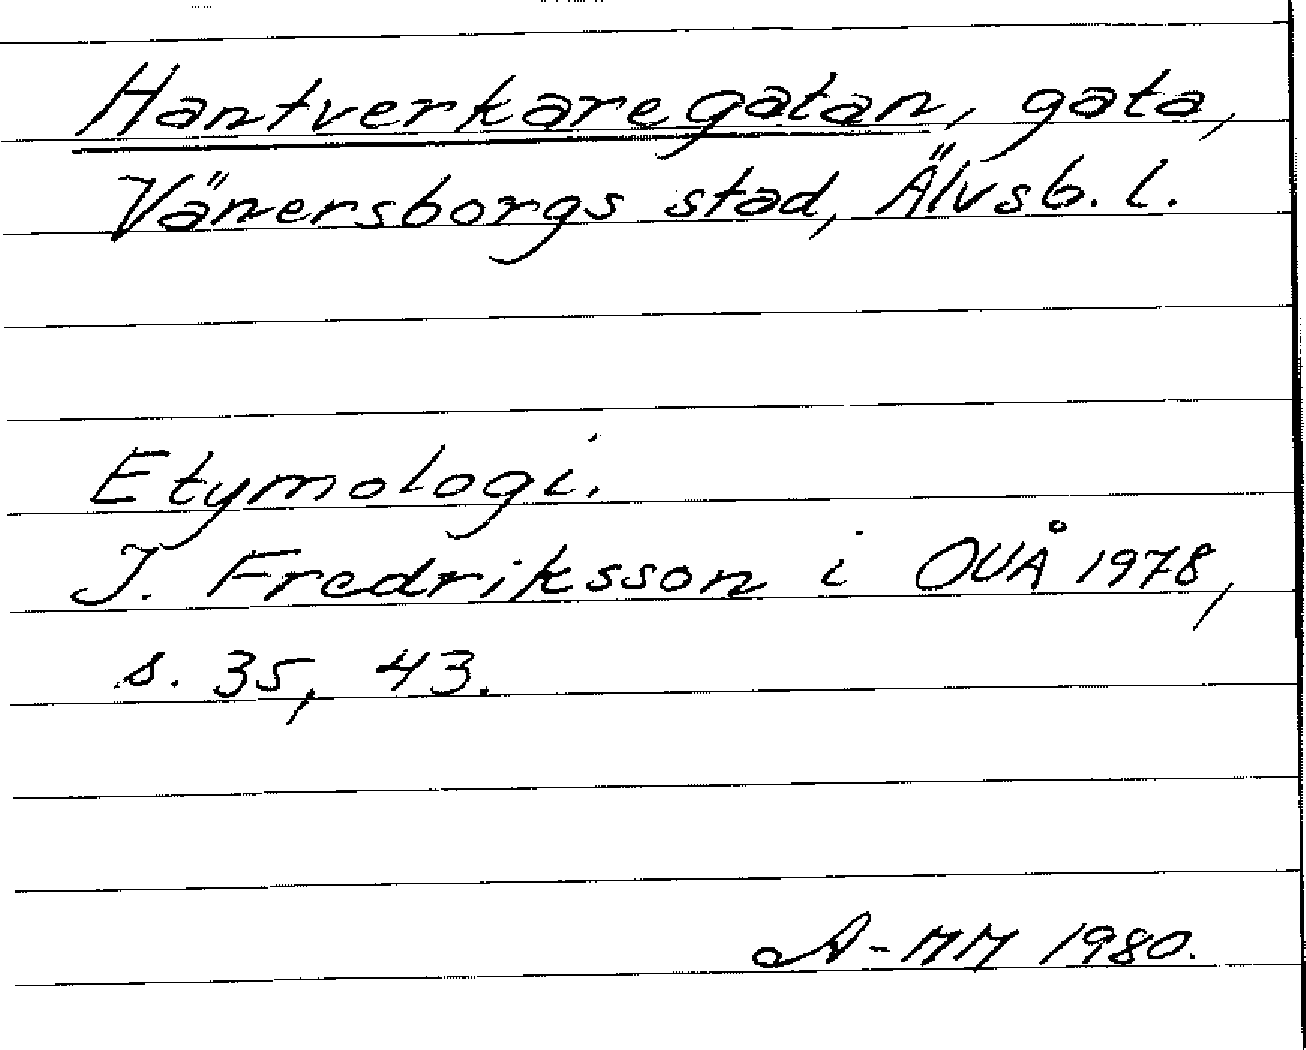 Hantverkaregatan, gata,
Vänersborgs stad, Älvsb. l.
Etymologi.
J. Fredriksson i OUÅ 1978,
s. 35, 43.
A-MM 1980.